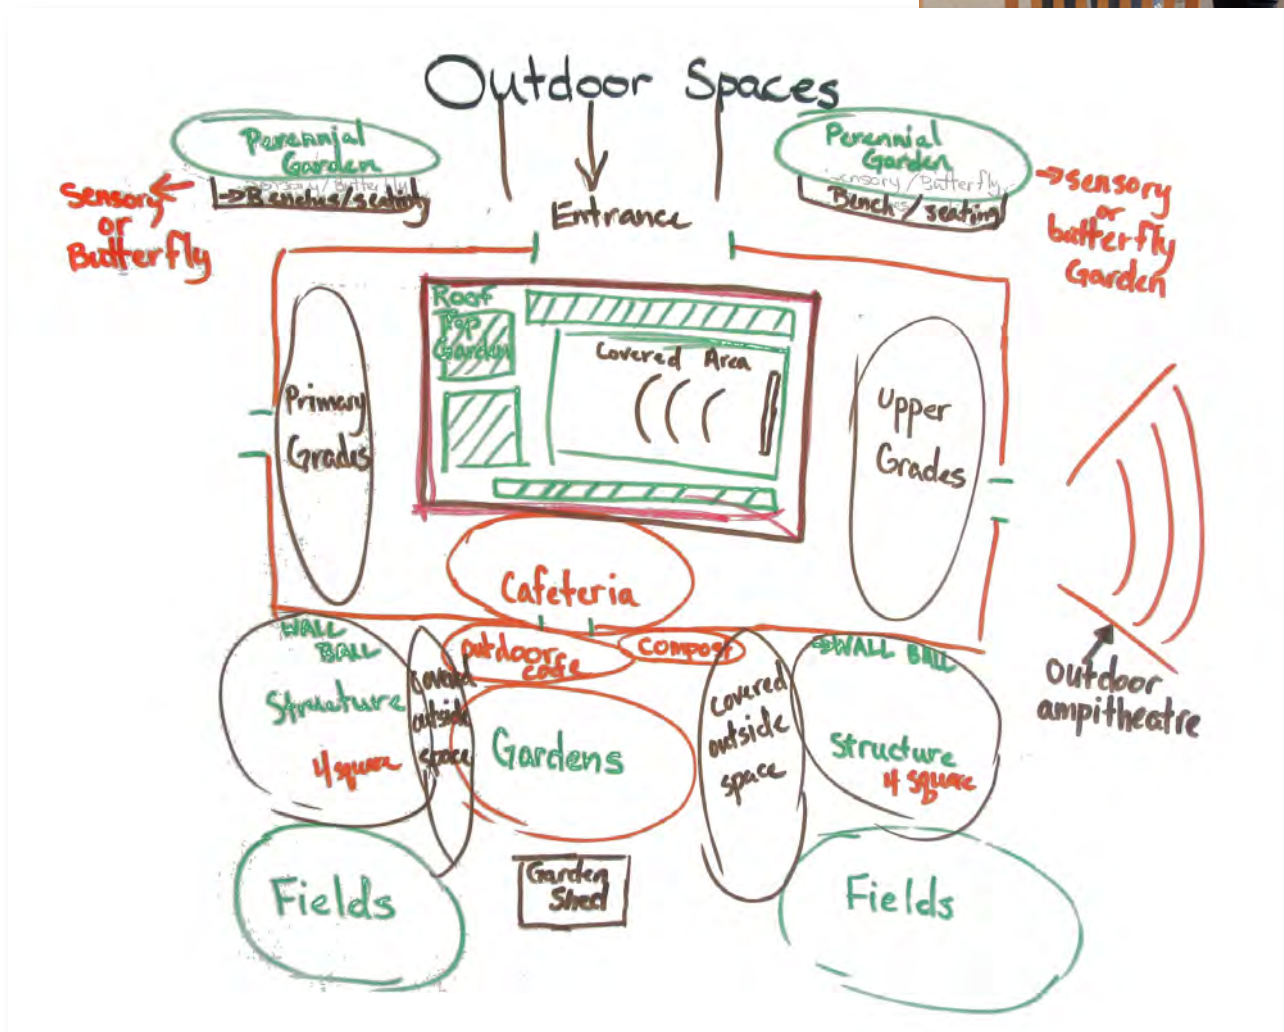 Outdoor Spaces
Perennial
Garden
Sensory/Butterfly
→Benches/seating
Sensory
or
Butterfly
Perennial
Garden
Sensory/Butterfly
Bench/seating
→sensory
or
butterfly
Garden
Entrance
Roof
Top
Garden
Covered Area
Primary
Grades
Upper
Grades
Cafeteria
WALL
BALL
Structure
4 square
covered
outside
space
outdoor
cafe
compost
Gardens
covered
outside
space
→WALL BALL
Structure
4 square
outdoor
ampitheatre
Fields
Garden
Shed
Fields